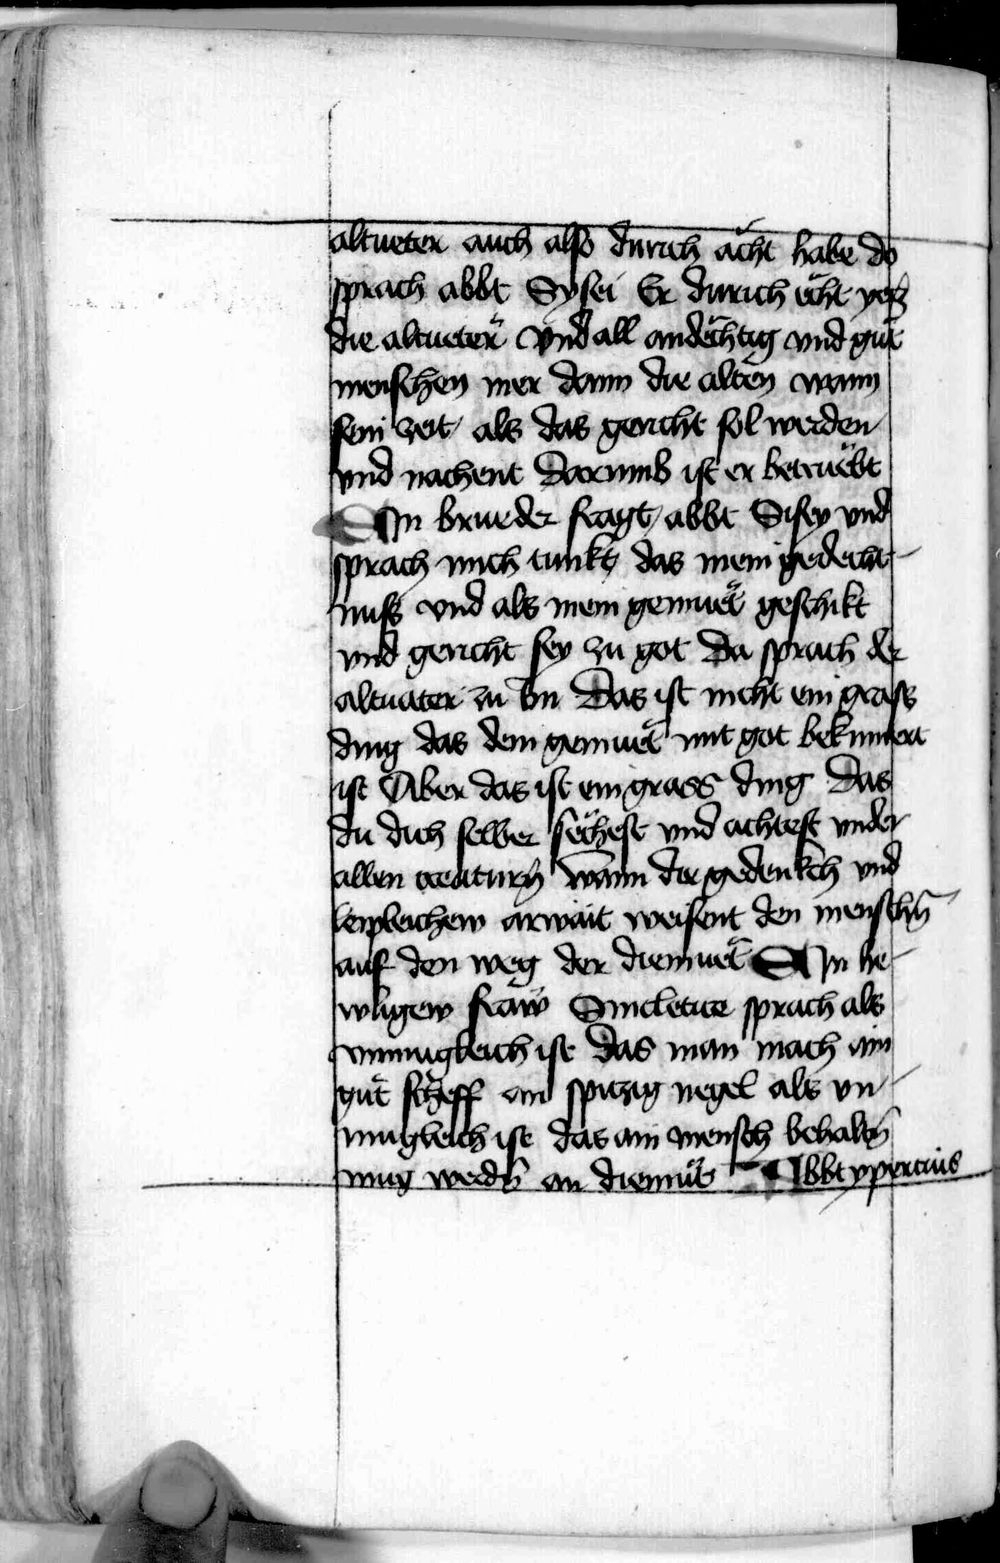 altueter auch also durich ächt habe do
sprach abbt Sysei Er durich ächt yetz
die altueter Vnd all andächtig vnd güt
menschen mer dann die alten wann
sein zeit als das gericht sol werden
vnd nachent Darumb ist er betruebt
Ain brueder fragt abbt Sisey vnd
sprach mich tunkt das mein gedecht
nuss vnd als mein gemuet geschikt
vnd gericht sey zu got Da sprach der
altuater zu im Das ist nicht ein grass
ding das dein gemuet mit got bekumert
ist Aber das ist ein grass ding Das
du dich selber sechest vnd achtest vnder
allen creaturn wann der gedenkch vnd
leipleichew arwait weisent den menschñ
auf den weg der diemuet Ain he
yligew fraw Sincletice sprach als
vnmugleich ist das man mach ain
güt scheff an spitzig negel als vn
mugleich ist das ain mensch behaltñ
mug werdñ an diemüt Abbt ypercius